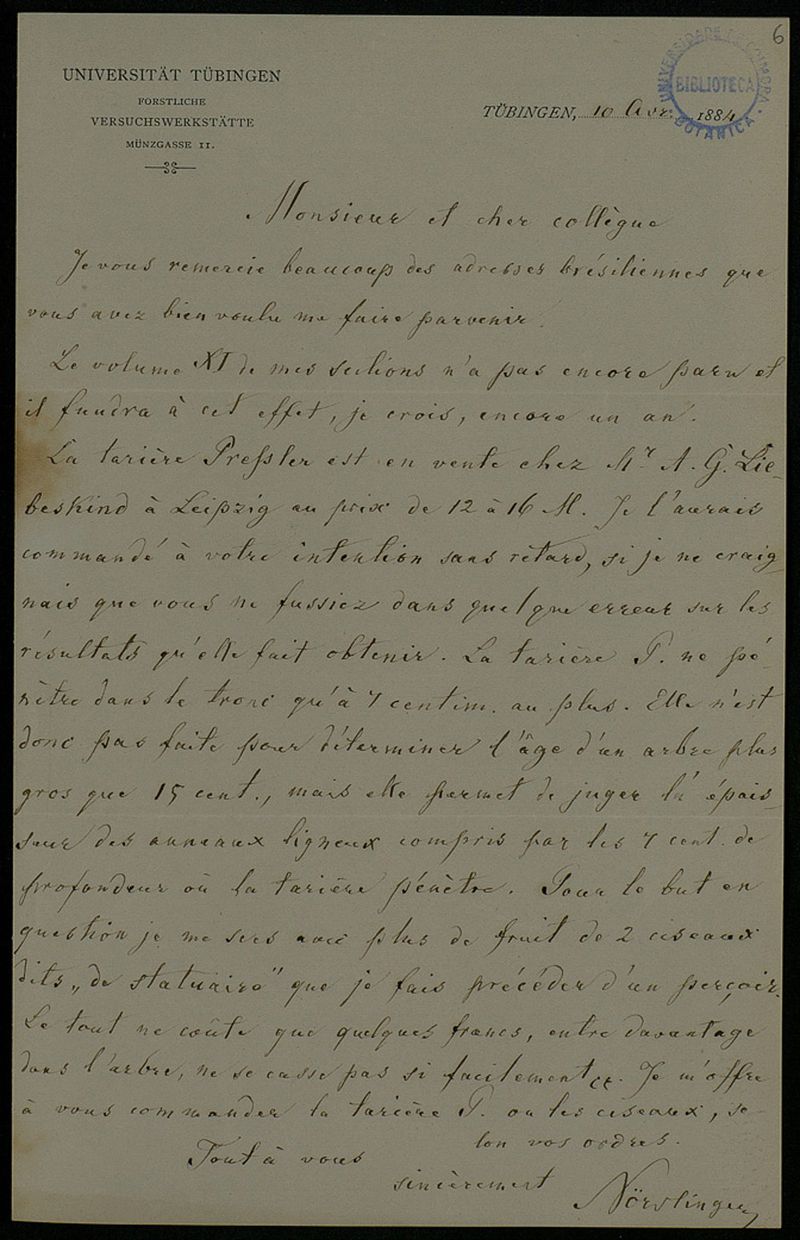 6
UNIVERSITÄT TÜBINGEN
FORSTLICHE
VERSUCHSWERKSTÄTTE
MÜNZGASSE 11.
UNIVERSIDADE DE COIMBRA
BIBLIOTECA
BOTANICA
TÜBINGEN, 10 Avr. 1884
Monsieur et cher collègue
Je vous remercie beaucoup des adresses brésiliennes que
vous avez bien voulu me faire parvenir.
Le volume XI de mes sections n'a pas encore paru et
il faudra à cet effet, je crois, encore un an.
La tarière Preſsler est en vente chez Mr. A. G. Lie-
beskind à Leipzig au prix de 12 à 16 M. Je l'aurais
commandé à votre intention sans rétard, si je ne craig-
nais que vous ne fussiez dans quelque erreur sur les
résultats qu'elle fait obtenir. La tarière P. ne pé-
nètre dans le tronc qu'à 7 centim. au plus. Elle n'est
donc pas faite pour déterminer l'âge d'un arbre plus
gros que 15 cent., mais elle permet de juger l'épais-
seur des anneaux ligneux compris par les 7 cent. de
profondeur où la tarière pénètre. Pour le but en
question je me sers avec plus de fruit de 2 ciseaux
dits „de statuaire" que je fais précéder d'un perçoir.
Le tout ne coûte que quelques francs, entre davantage
dans l'arbre, ne se casse pas si facilement. Je m'offre
à vous commander la tarière P. ou les ciseaux, se-
lon vos ordres.
Tout à vous
sincèrement
Nördlinger